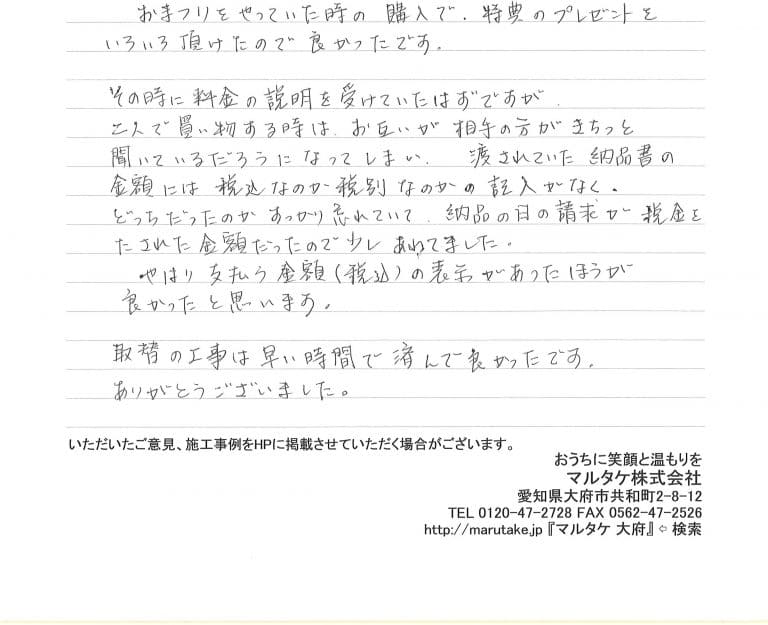 おまつりをやっていた時の購入で、特典のプレゼントを
いろいろ頂けたので良かったです。
その時に料金の説明を受けていたはずですが、
二人で買い物する時は、お互いが相手の方がきちっと
聞いているだろうになってしまい、渡されていた納品書の
金額には税込なのか税別なのかの記入がなく、
どっちだったのかすっかり忘れていて、納品の日の請求が税金を
たされた金額だったので少しあわてました。
やはり支払う金額(税込)の表示があったほうが
良かったと思います。
取替の工事は早い時間で済んで良かったです。
ありがとうございました。
いただいたご意見、施工事例をHPに掲載させていただく場合がございます。
おうちに笑顔と温もりを
マルタケ株式会社
愛知県大府市共和町2-8-12
TEL 0120-47-2728 FAX 0562-47-2526
http://marutake.jp『マルタケ 大府』⇦検索